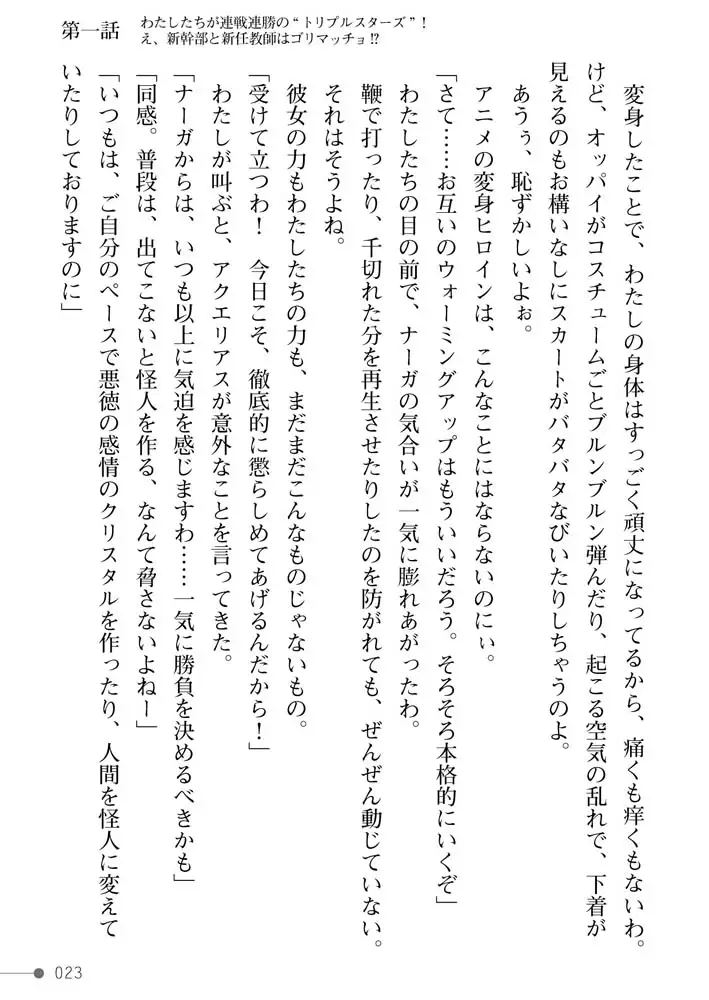 第一話
わたしたちが連戦連勝の“トリプルスターズ”！
え、新幹部と新任教師はゴリマッチョ!?
変身したことで、わたしの身体はすっごく頑丈になってるから、痛くも痒くもないわ。
けど、オッパイがコスチュームごとブルンブルン弾んだり、起こる空気の乱れで、下着が
見えるのもお構いなしにスカートがバタバタなびいたりしちゃうのよ。
あうぅ、恥ずかしいよぉ。
アニメの変身ヒロインは、こんなことにはならないのにぃ。
「さて……お互いのウォーミングアップはもういいだろう。そろそろ本格的にいくぞ」
わたしたちの目の前で、ナーガの気合いが一気に膨れあがったわ。
鞭で打ったり、千切れた分を再生させたりしたのを防がれても、ぜんぜん動じていない。
それはそうよね。
彼女の力もわたしたちの力も、まだまだこんなものじゃないもの。
「受けて立つわ！　今日こそ、徹底的に懲らしめてあげるんだから！」
わたしが叫ぶと、アクエリアスが意外なことを言ってきた。
「ナーガからは、いつも以上に気迫を感じますわ……一気に勝負を決めるべきかも」
「同感。普段は、出てこないと怪人を作る、なんて脅さないよねー」
「いつもは、ご自分のペースで悪徳の感情のクリスタルを作ったり、人間を怪人に変えて
いたりしておりますのに」
023